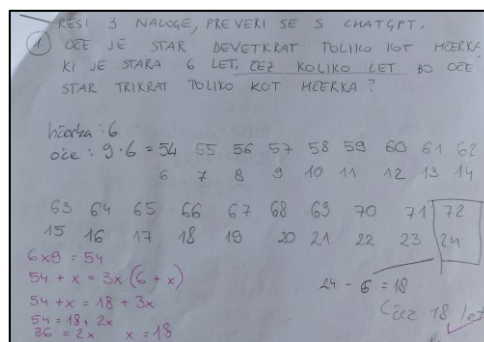 REŠI 3 NALOGE, PREVERI SE S CHATGPT.
1 OČE JE STAR DEVETKRAT TOLIKO KOT HČERKA,
KI JE STARA 6 LET. ČEZ KOLIKO LET BO OČE
STAR TRIKRAT TOLIKO KOT HČERKA?
hčerka: 6
oče: 9·6 = 54 55 56 57 58 59 60 61 62
6 7 8 9 10 11 12 13 14
63 64 65 66 67 68 69 70 71 72
15 16 17 18 19 20 21 22 23 24
6x9 = 54
54 + x = 3x (6 + x)
54 + x = 18 + 3x
54 = 18 + 2x
36 = 2x x = 18
24 - 6 = 18
čez 18 let